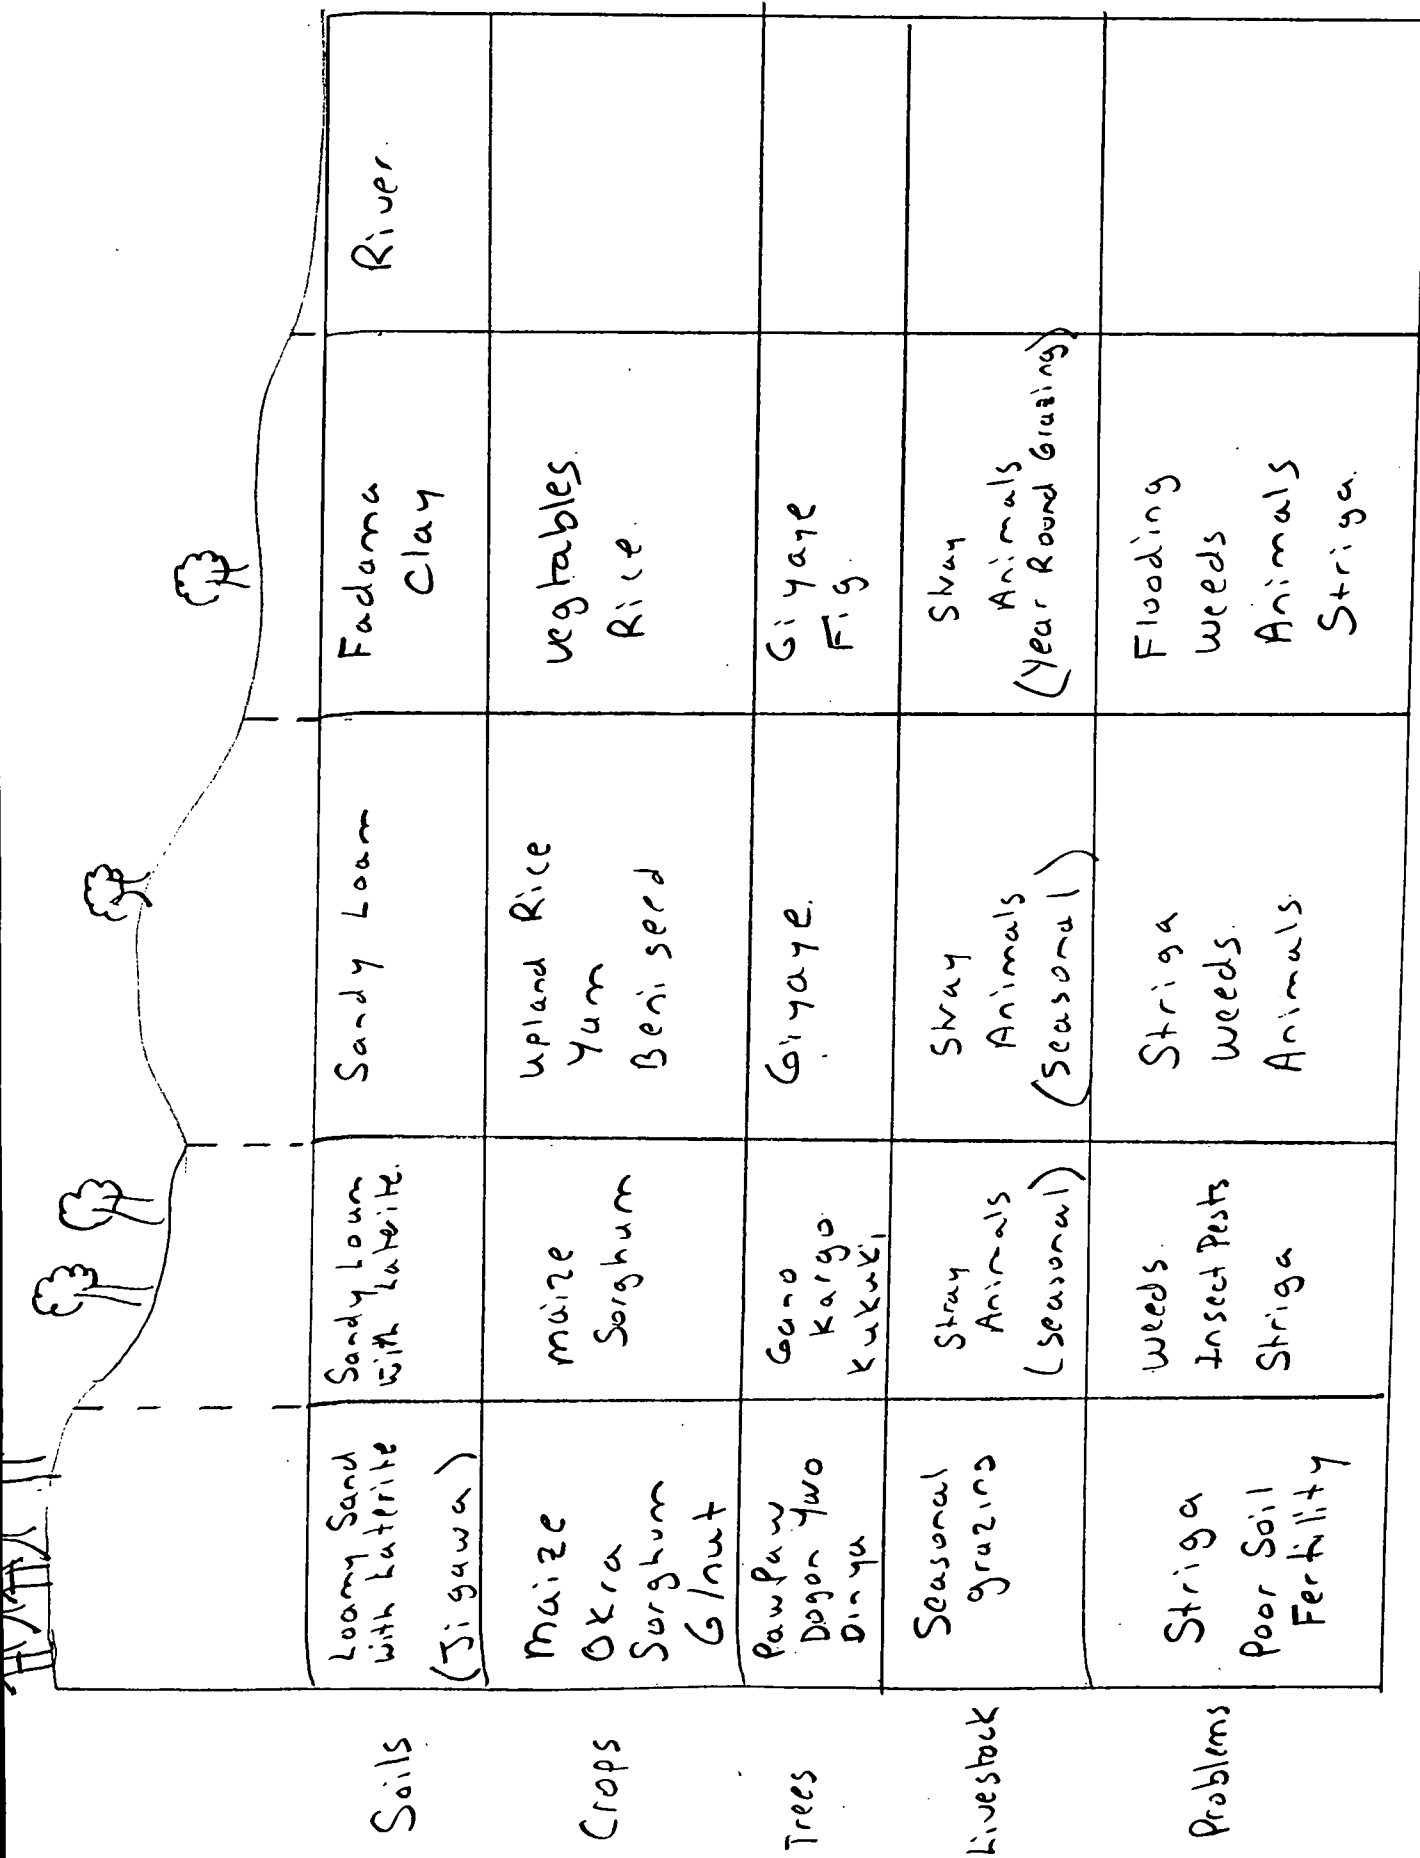 Soils
Loamy Sand
with Laterite
(Jigawa)
Sandy Loam
with Laterite.
Sandy Loam
Fadama
Clay
River.
Crops
Maize
Okra
Sorghum
G/nut
maize
Sorghum
upland Rice
Yam
Beniseed
vegtables.
Rice
Trees
PawPaw
Dogon Ywo
Dinya
Gano
Kargo
Kukuki
Giyaye.
Giyaye
Fig.
Livestock
Seasonal
grazing
Stray
Animals
(seasonal)
Stray
Animals
(seasonal)
Stray
Animals
(Year Round Grazing)
Problems
Striga
Poor Soil
Fertility
weeds.
Insect Pests
Striga
Striga
weeds.
Animals.
Flooding
weeds
Animals
Striga.